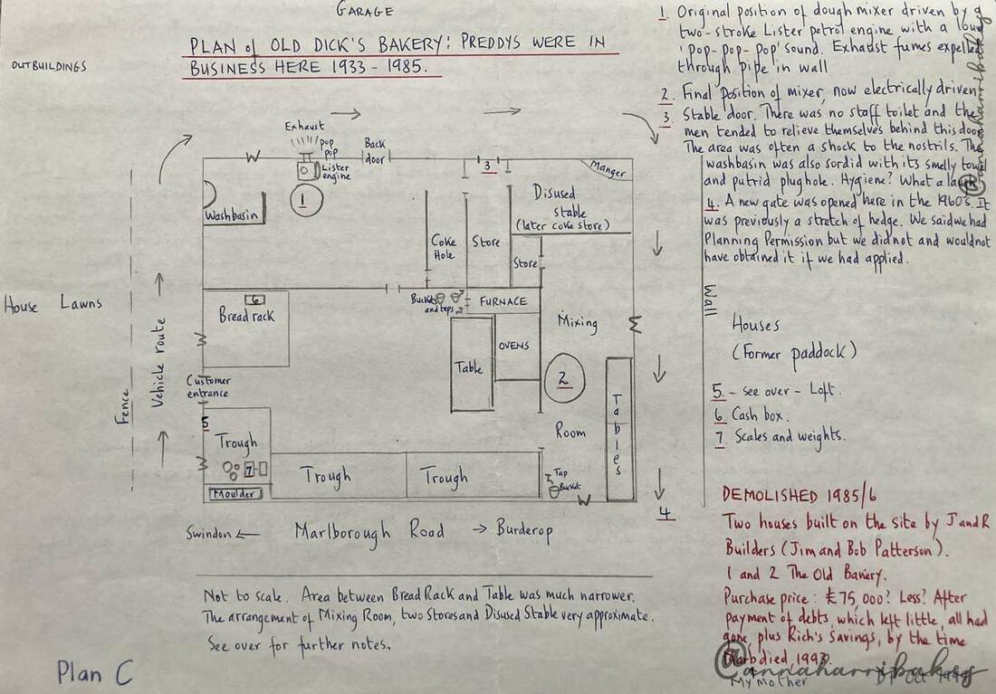 GARAGE
PLAN of OLD DICK'S BAKERY: PREDDYS WERE IN
BUSINESS HERE 1933-1985.
OUTBUILDINGS
1. Original position of dough mixer driven by a
two-stroke Lister petrol engine with a loud
'pop-pop-pop' sound. Exhaust fumes expelled
through pipe in wall
2. Final position of mixer, now electrically driven
3. Stable door. There was no staff toilet and the
men tended to relieve themselves behind this door
The area was often a shock to the nostrils. The
washbasin was also sordid with its smelly towel
and putrid plughole. Hygiene? What a laugh
4. A new gate was opened here in the 1960's. It
was previously a stretch of hedge. We said we had
Planning Permission but we did not and would not
have obtained it if we had applied.
Exhaust
pop
pop
Lister
engine
Back
door
3
Manger
1
Washbasin
Disused
stable
(later coke store)
Coke
Hole
Store
Store
Buckets
and taps
FURNACE
Mixing
6
Bread rack
OVENS
Table
2
Tables
Room
House Lawns
Fence
Vehicle route
Customer
entrance
5
Trough
7
Moulder
Trough
Trough
Tap
Bucket
4
Wall
Houses
(Former paddock)
5 - see over - Loft.
6. Cash box.
7. Scales and weights.
Swindon ← Marlborough Road → Burderop
DEMOLISHED 1985/6
Two houses built on the site by J and R
Builders (Jim and Bob Patterson).
1 and 2 The Old Bakery.
Purchase price: £75,000? Less? After
payment of debts, which left little, all had
gone, plus Rich's savings, by the time
died, 1993.
My mother
Not to scale. Area between Bread Rack and Table was much narrower.
The arrangement of Mixing Room, two Stores and Disused Stable very approximate.
See over for further notes.
Plan C
@annaharribakes